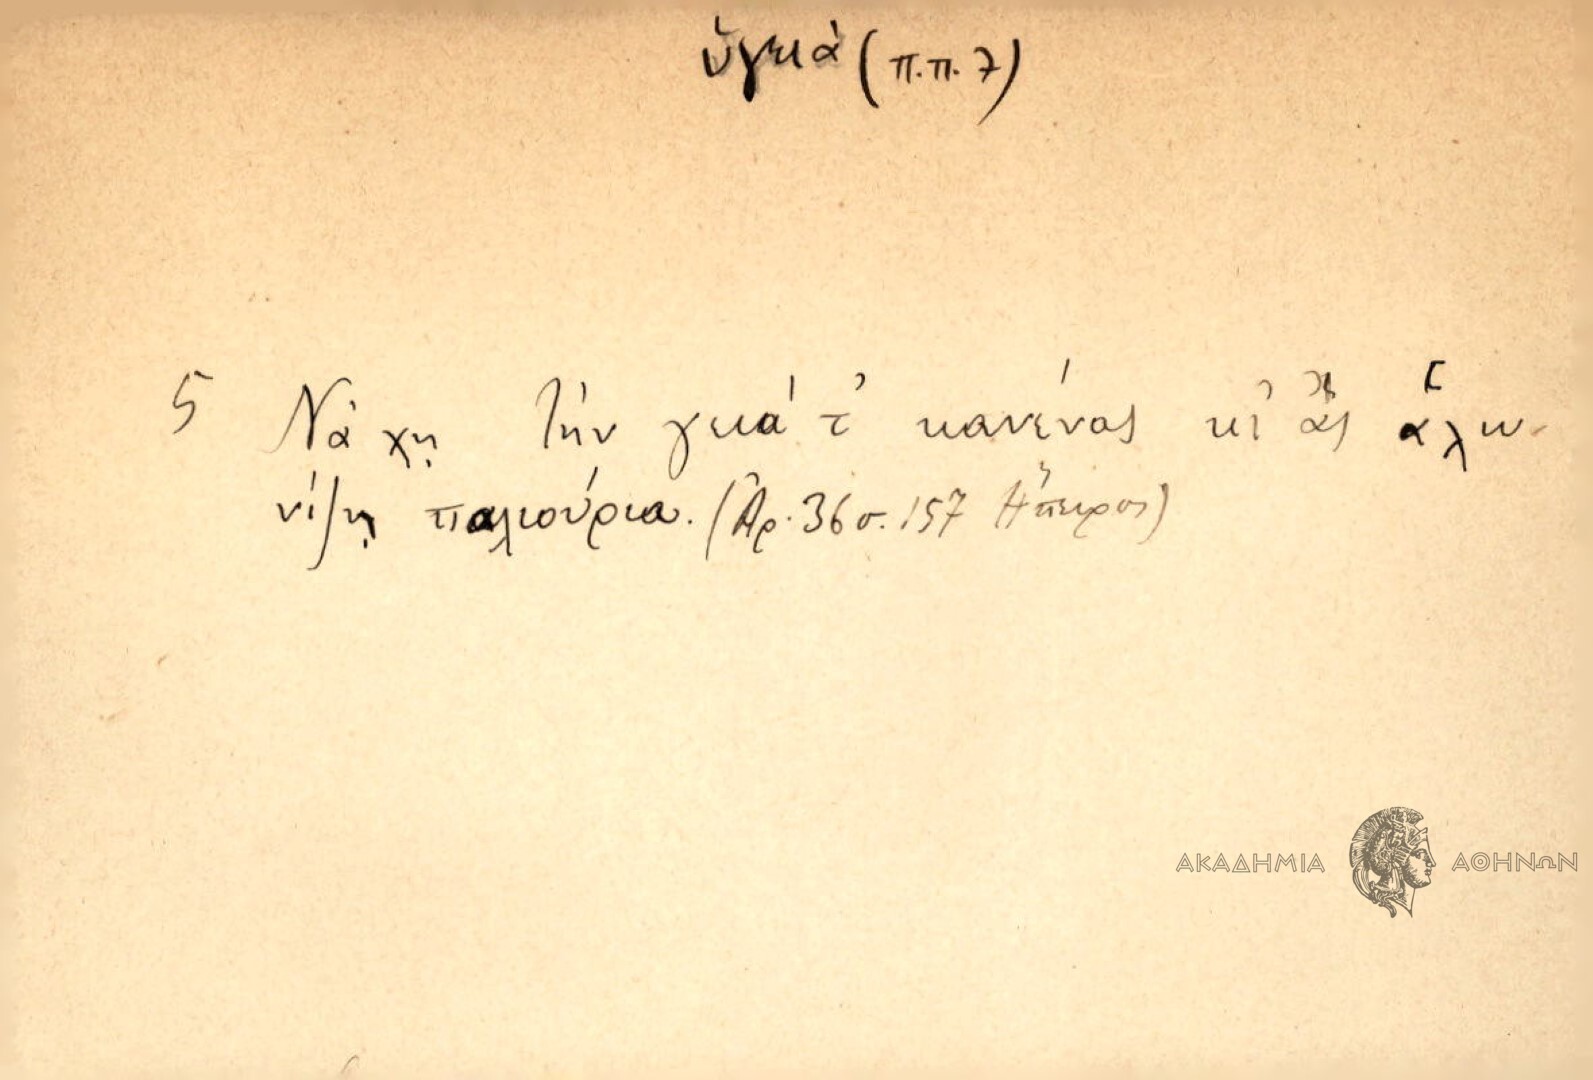 ὑγειά (π.π. 7)
5 Νά χῃ τήν γειά τ' κανένας κι' ἄς ἁλω-
νίζῃ παλιούρια. (Ἀρ. 36 σ. 157 Ἤπειρος)
ΑΚΑΔΗΜΙΑ ΑΘΗΝΩΝ